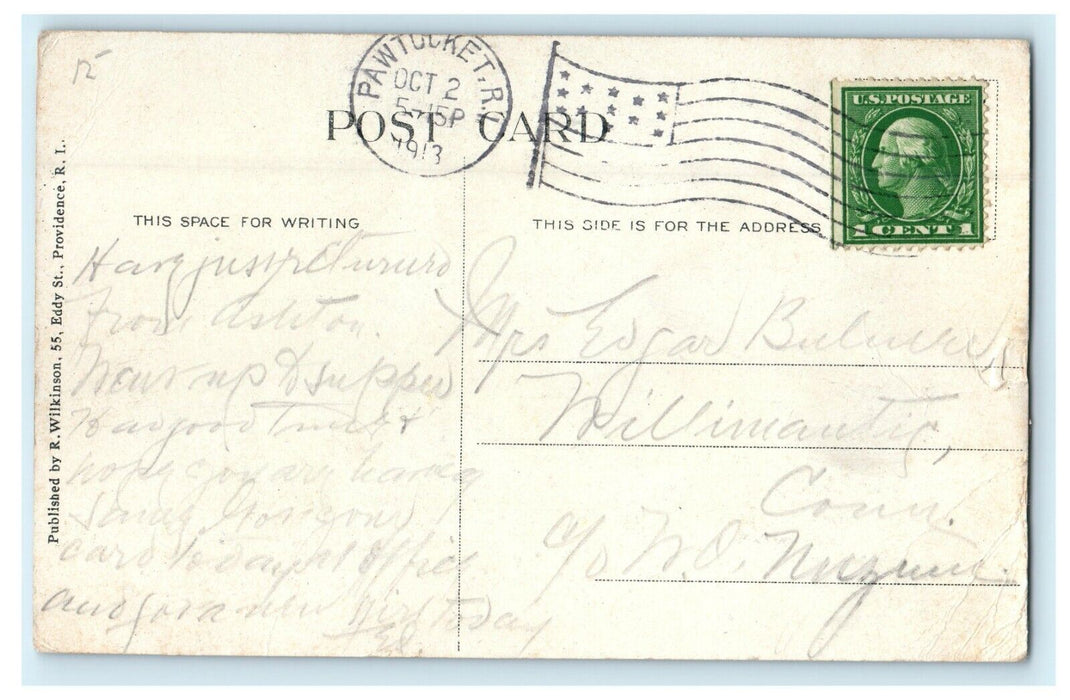 PAWTUCKET, R.I.
OCT 2
5-15P
1913
POST CARD
U.S. POSTAGE
1 CENT 1
THIS SPACE FOR WRITING
THIS SIDE IS FOR THE ADDRESS
Published by R. Wilkinson, 55, Eddy St., Providence, R. I.
Have just returned
from Ashton.
up & supper
Had good time &
hope you are having
same. Got your
card today at office
and for a new today
Ed.
Mrs Edgar
Willimantic,
Conn.
c/o W. C.